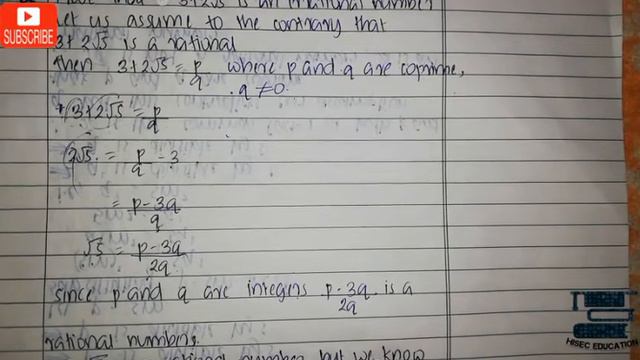 3+2√5 is an irrational number
Let us assume to the contrary that
3+2√5 is a rational
Then 3+2√5 = p/q where p and q are coprime,
q ≠ 0.
3+2√5 = p/q
2√5 = p/q - 3
= p-3q/q
√5 = p-3q/2q
since p and q are integers p-3q/2q is a
rational number,
number but we know
HISEC EDUCATION